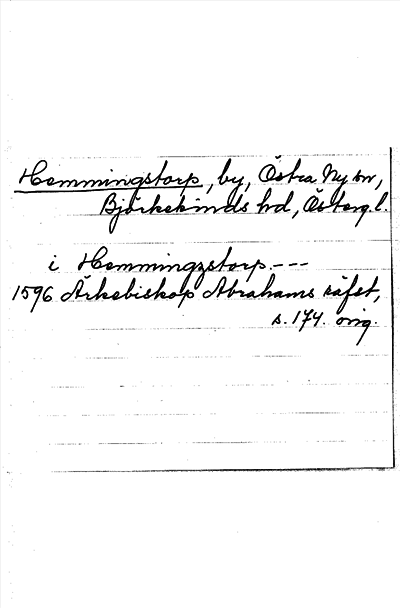 Hemmingstorp, by, Östra Ny sn,
Björkekinds hd, Östergl.
i Hemmingzstorp ---
1596 Ärkebiskop Abrahams räfst,
s. 174. orig.